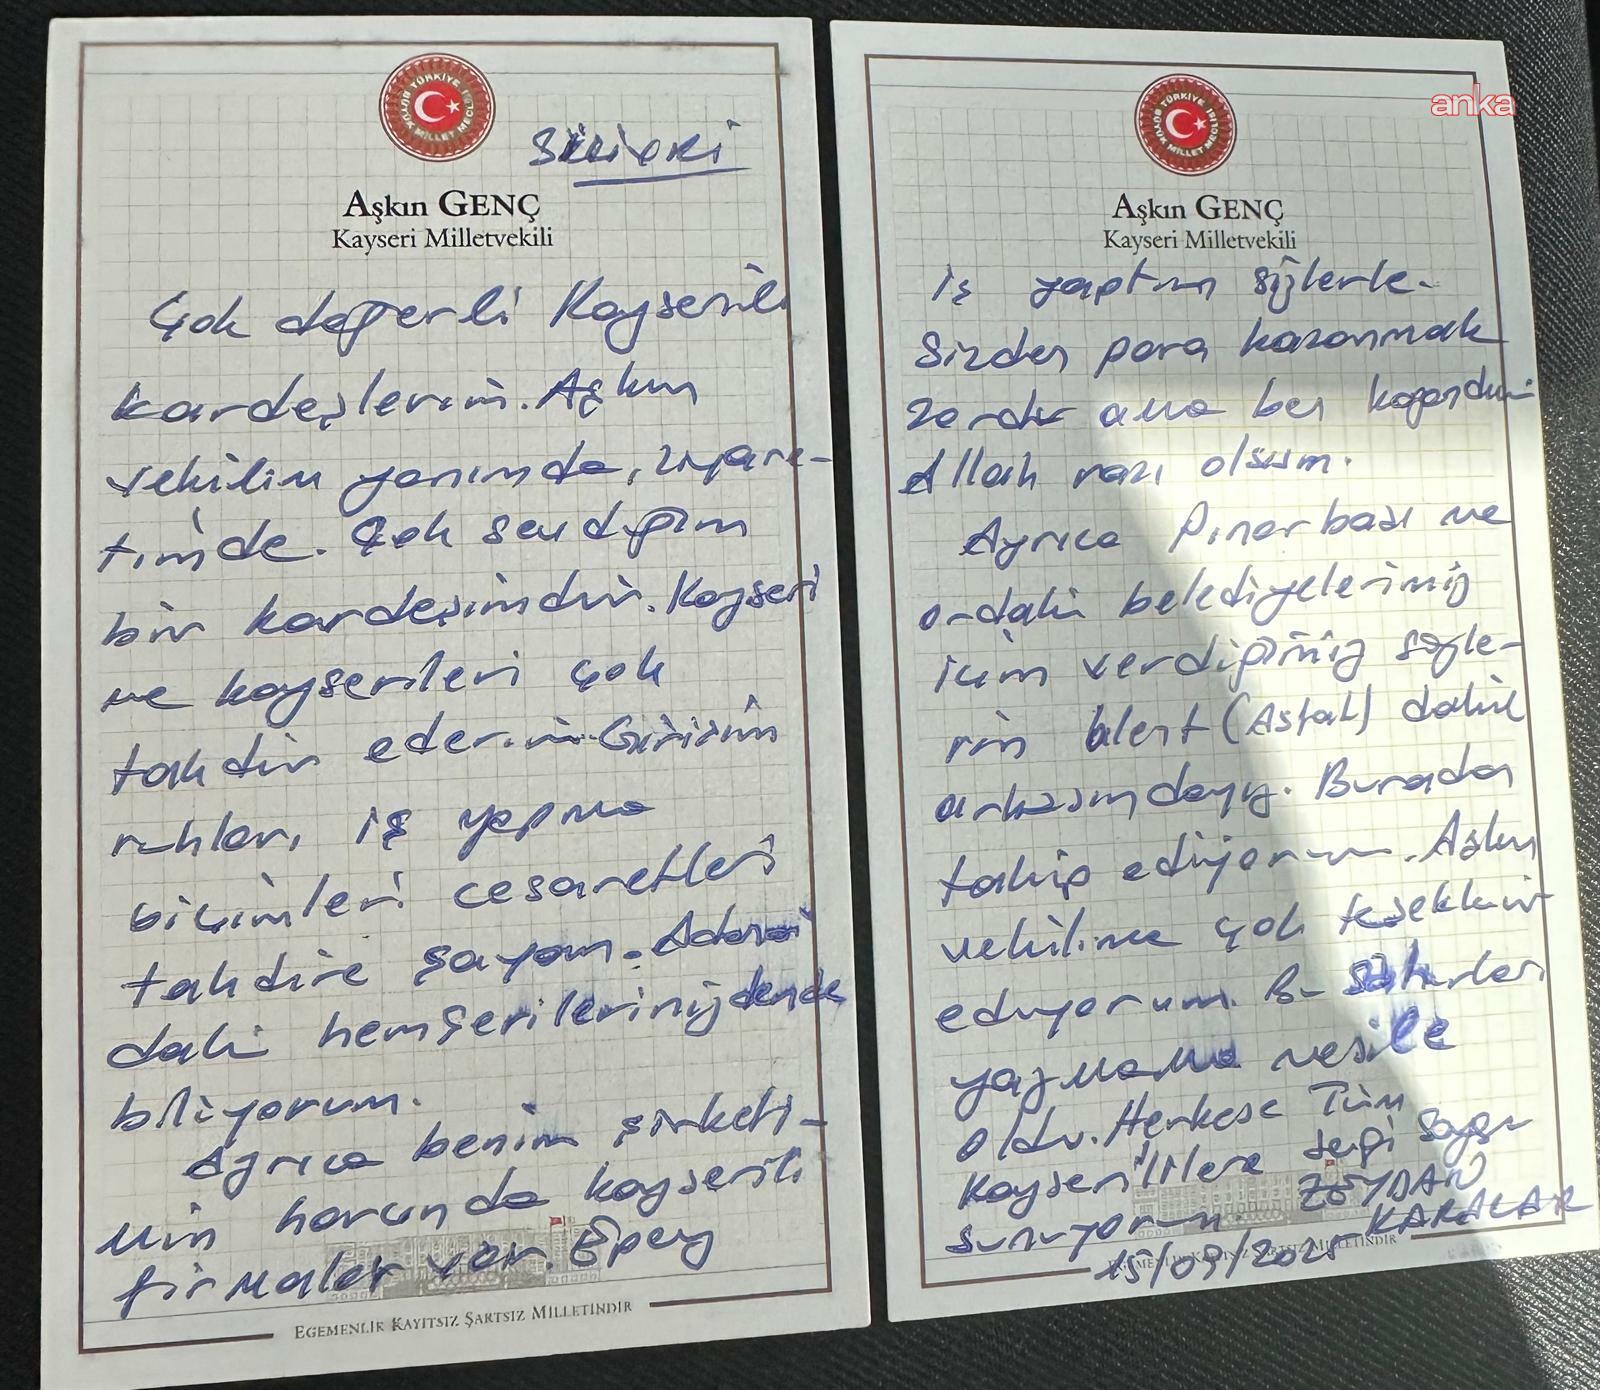 TÜRKİYE BÜYÜK MİLLET MECLİSİ
Silivri
Aşkın GENÇ
Kayseri Milletvekili
Çok değerli Kayserili
kardeşlerim. Aşkın
vekilim yanımda, ziyare-
timde. Çok sevdiğim
bir kardeşimdir. Kayseri
ve kayserileri çok
takdir ederim. Girişim
ruhları, iş yapma
biçimleri cesaretleri
takdire şayan. Adana
daki hemşerilerinizdende
biliyorum.
Ayrıca benim şirketi-
min harcında kayserili
firmalar var. Epey
EGEMENLİK KAYITSIZ ŞARTSIZ MİLLETİNDİR
anka
TÜRKİYE BÜYÜK MİLLET MECLİSİ
Aşkın GENÇ
Kayseri Milletvekili
iş yaptım sizlerle.
Sizden para kazanmak
zordur ama ben kazandım
Allah razı olsun.
Ayrıca Pınarbaşı ve
ordaki belediyelerimiz
için verdiğimiz sözle-
rin (Asfalt) dahil
arkasındayız. Buradan
takip ediyorum. Aşkın
vekilime çok teşekkür
ediyorum. Bu satırları
yazmama vesile
oldu. Herkese Tüm
Kayserililere sevgi saygı
sunuyorum. ZEYDAN
KARALAR
EGEMENLİK KAYITSIZ ŞARTSIZ MİLLETİNDİR
15/09/2025